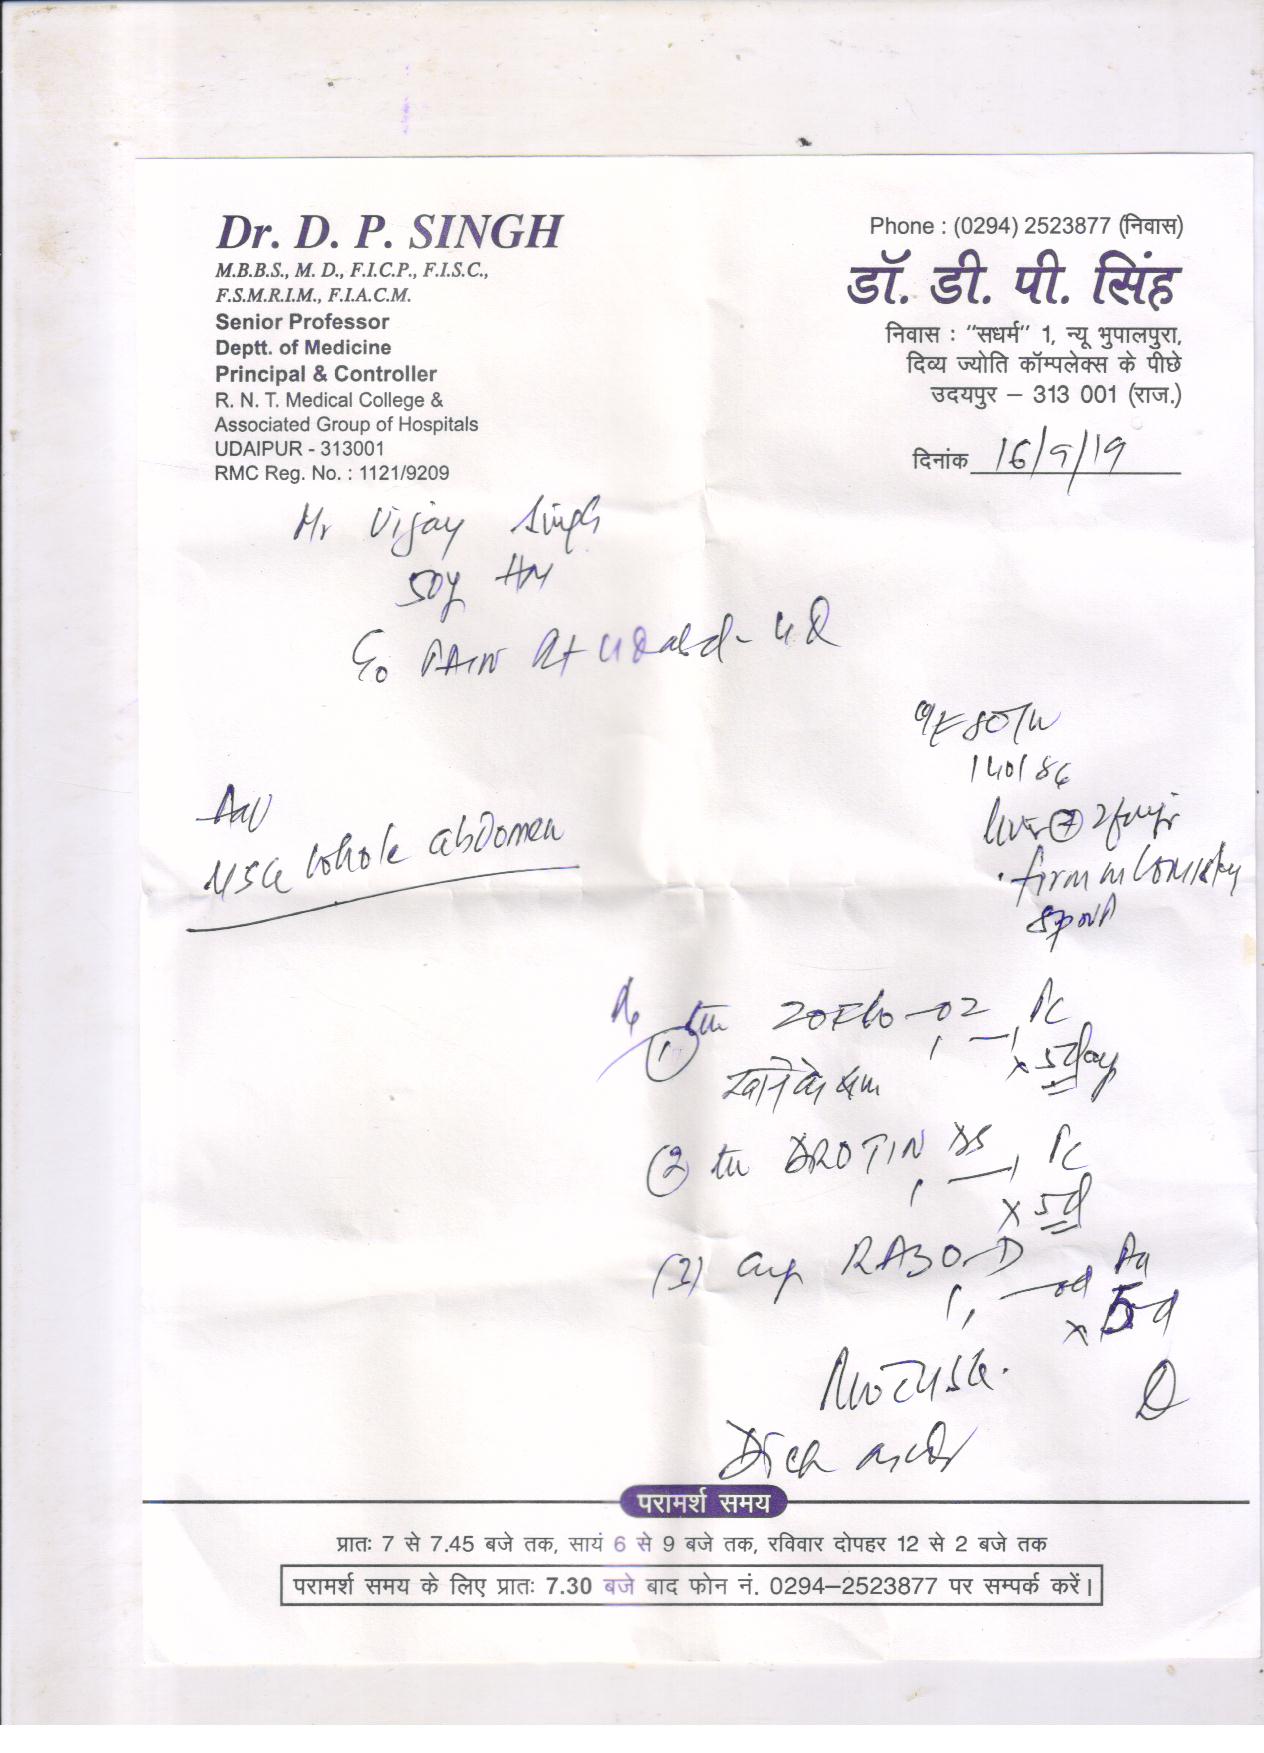 Dr. D. P. SINGH
M.B.B.S., M. D., F.I.C.P., F.I.S.C.,
F.S.M.R.I.M., F.I.A.C.M.
Senior Professor
Deptt. of Medicine
Principal & Controller
R. N. T. Medical College &
Associated Group of Hospitals
UDAIPUR - 313001
RMC Reg. No. : 1121/9209
Phone : (0294) 2523877 (निवास)
डॉ. डी. पी. सिंह
निवास : "सधर्म" 1, न्यू भुपालपुरा,
दिव्य ज्योति कॉम्पलेक्स के पीछे
उदयपुर – 313 001 (राज.)
दिनांक 16/9/19
Mr Vijay Singh
50y
C/o PAIN
140/86
liver
firm in
USG whole abdomen
Rx
(1) 02 PC
x 5 day
(2) DROTIN DS PC
x 5d
(3) cap RABO-D
od
x 5d
परामर्श समय
प्रातः 7 से 7.45 बजे तक, सायं 6 से 9 बजे तक, रविवार दोपहर 12 से 2 बजे तक
परामर्श समय के लिए प्रातः 7.30 बजे बाद फोन नं. 0294–2523877 पर सम्पर्क करें।